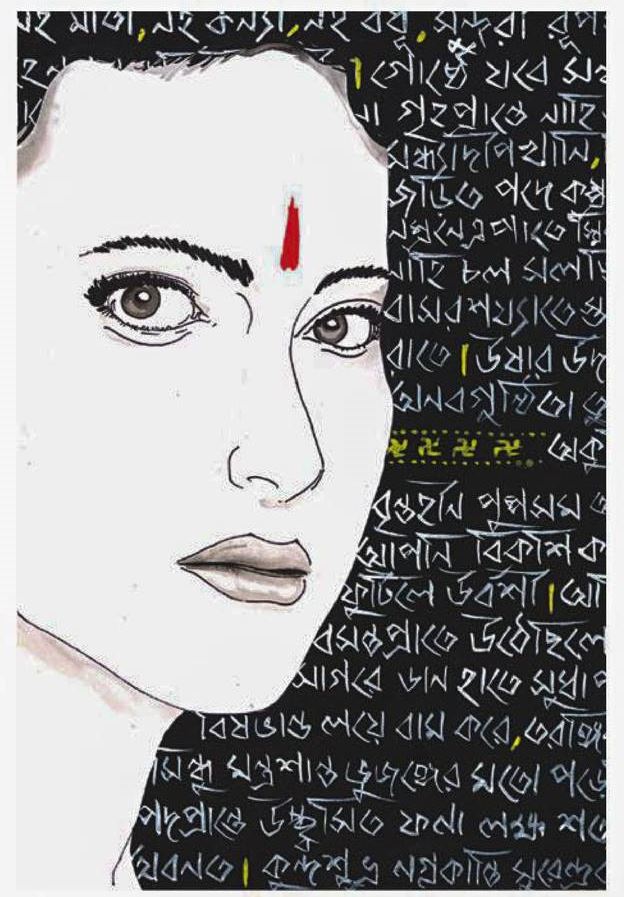 নহ মাতা, নহ কন্যা, নহ বধূ, সুন্দরী রূপ
। গোষ্ঠে যবে
গৃহপ্রান্তে নাহি
সন্ধ্যাদীপখানি,
জড়িত পদে
নম্রনেত্রপাতে
নাহি চল
বাসরশয্যাতে
রাতে। উষার উদ
অনবগুণ্ঠিতা
অকু
বৃন্তহীন পুষ্পসম
আপনি বিকশি ক
ফুটিলে উর্বশী। আদি
বসন্তপ্রাতে উঠেছিলে
সাগরে ডান হাতে সুধাপ
বিষভান্ড লয়ে বাম করে, তরঙ্গি
সিন্ধু মন্ত্রশান্ত ভুজঙ্গের মতো পড়ে
পদপ্রান্তে উচ্ছ্বসিত ফনা লক্ষ শত
অবনত। কুন্দশুভ্র নগ্নকান্তি সুরেন্দ্র